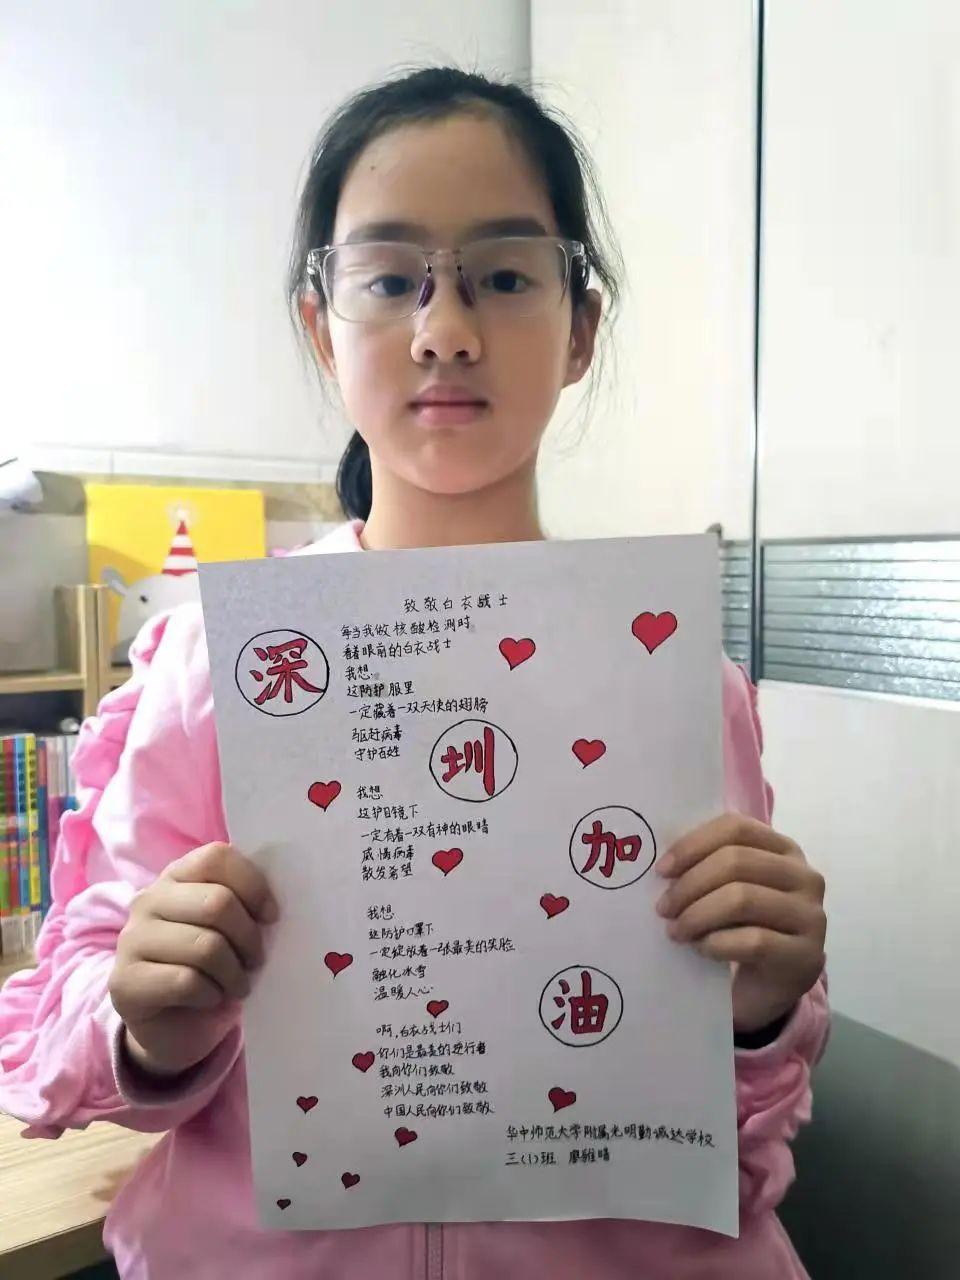 致敬白衣战士
每当我做核酸检测时
看着眼前的白衣战士
我想
这防护服里
一定藏着一双天使的翅膀
驱赶病毒
守护百姓
我想
这护目镜下
一定有着一双有神的眼睛
威慑病毒
散发希望
我想
这防护口罩下
一定绽放着一张最美的笑脸
融化冰雪
温暖人心
啊,白衣战士们
你们是最美的逆行者
我向你们致敬
深圳人民向你们致敬
中国人民向你们致敬
深
圳
加
油
华中师范大学附属光明勤诚达学校
三(1)班 廖雅晴